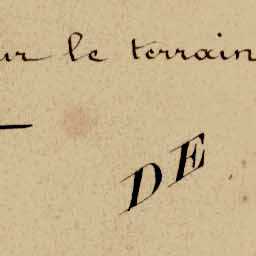 ur le terrain
DE